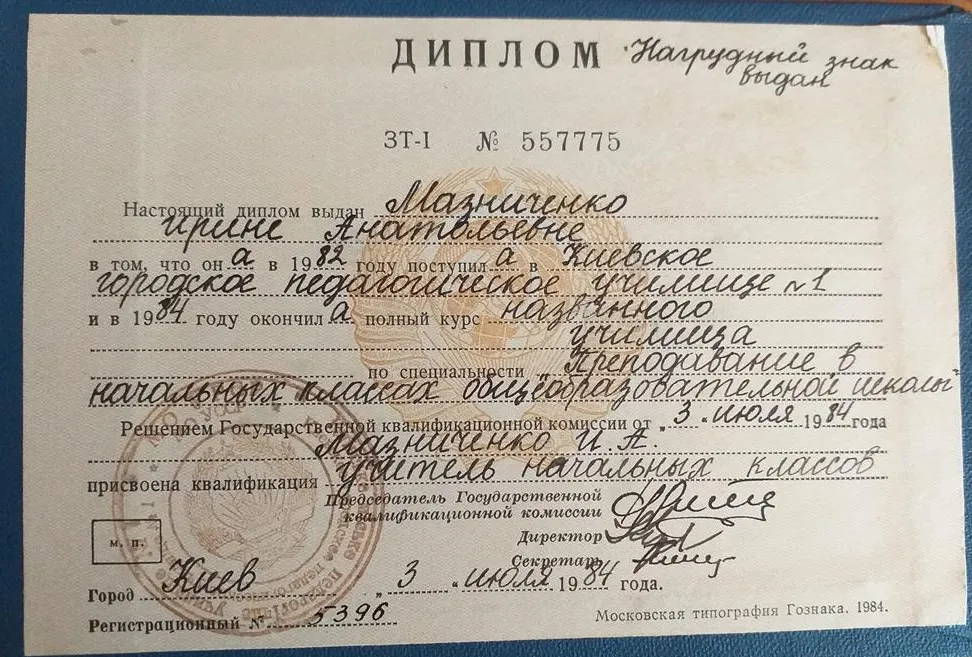 ДИПЛОМ
Нагрудный знак
выдан
ЗТ-I № 557775
Настоящий диплом выдан Мазниченко
Ирине Анатольевне
в том, что он а в 1982 году поступил а в Киевское
городское педагогическое училище №1
и в 1984 году окончил а полный курс названного
училища
по специальности „Преподавание в
начальных классах общеобразовательной школы“
Решением Государственной квалификационной комиссии от „3“ июля 1984 года
Мазниченко И. А.
присвоена квалификация учитель начальных классов
Председатель Государственной
квалификационной комиссии
Директор
Секретарь
М. П.
Город Киев „3“ июля 1984 года.
Регистрационный № 5396
Московская типография Гознака. 1984.